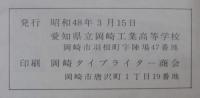 発行 昭和48年3月15日
愛知県立岡崎工業高等学校
岡崎市羽根町字陣場47番地
印刷 岡崎タイプライター商会
岡崎市唐沢町1丁目19番地